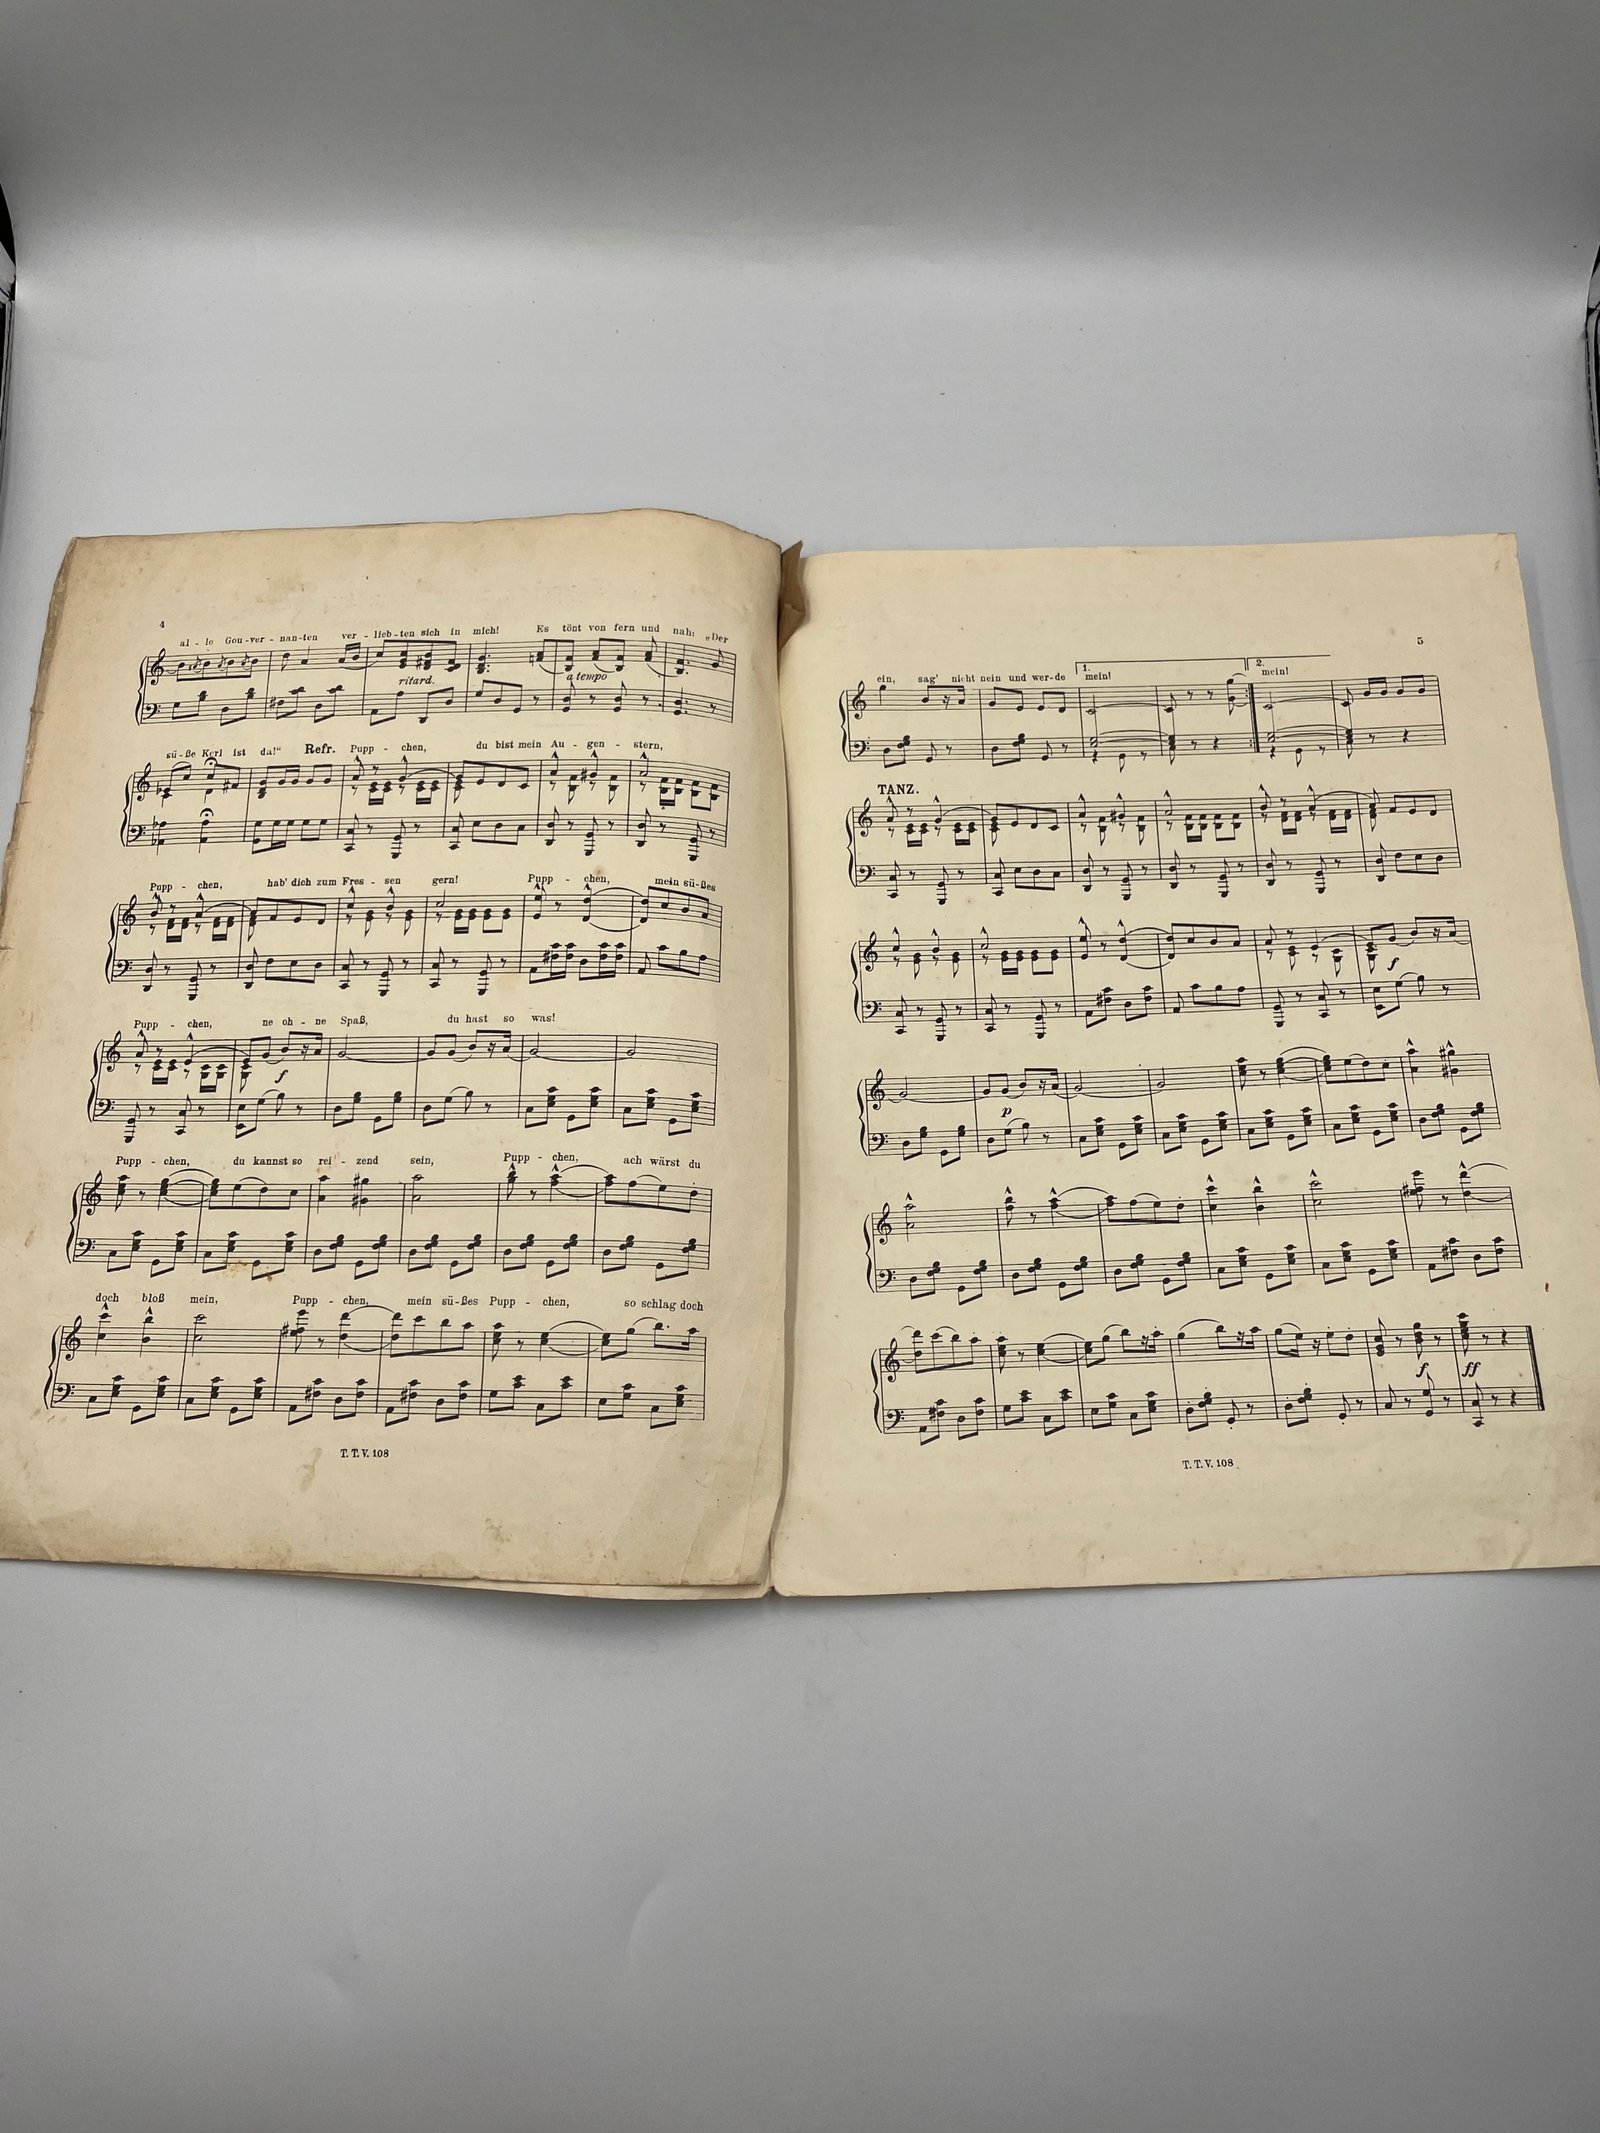 4
al - le Gou-ver - nan-ten ver - lieb-ten sich in mich! Es tönt von fern und nah: „Der
ritard. a tempo
sü-ße Kerl ist da!“ Refr. Pupp - chen, du bist mein Au - gen - stern,
Pupp - chen, hab' dich zum Fres - sen gern! Pupp - chen, mein sü-ßes
Pupp - chen, ne oh - ne Spaß, du hast so was!
f
Pupp - chen, du kannst so rei - zend sein, Pupp - chen, ach wärst du
doch bloß mein, Pupp - chen, mein sü-ßes Pupp - chen, so schlag doch
T. T. V. 108
5
1. 2.
ein, sag' nicht nein und wer-de mein! mein!
TANZ.
f
p
f ff
T. T. V. 108